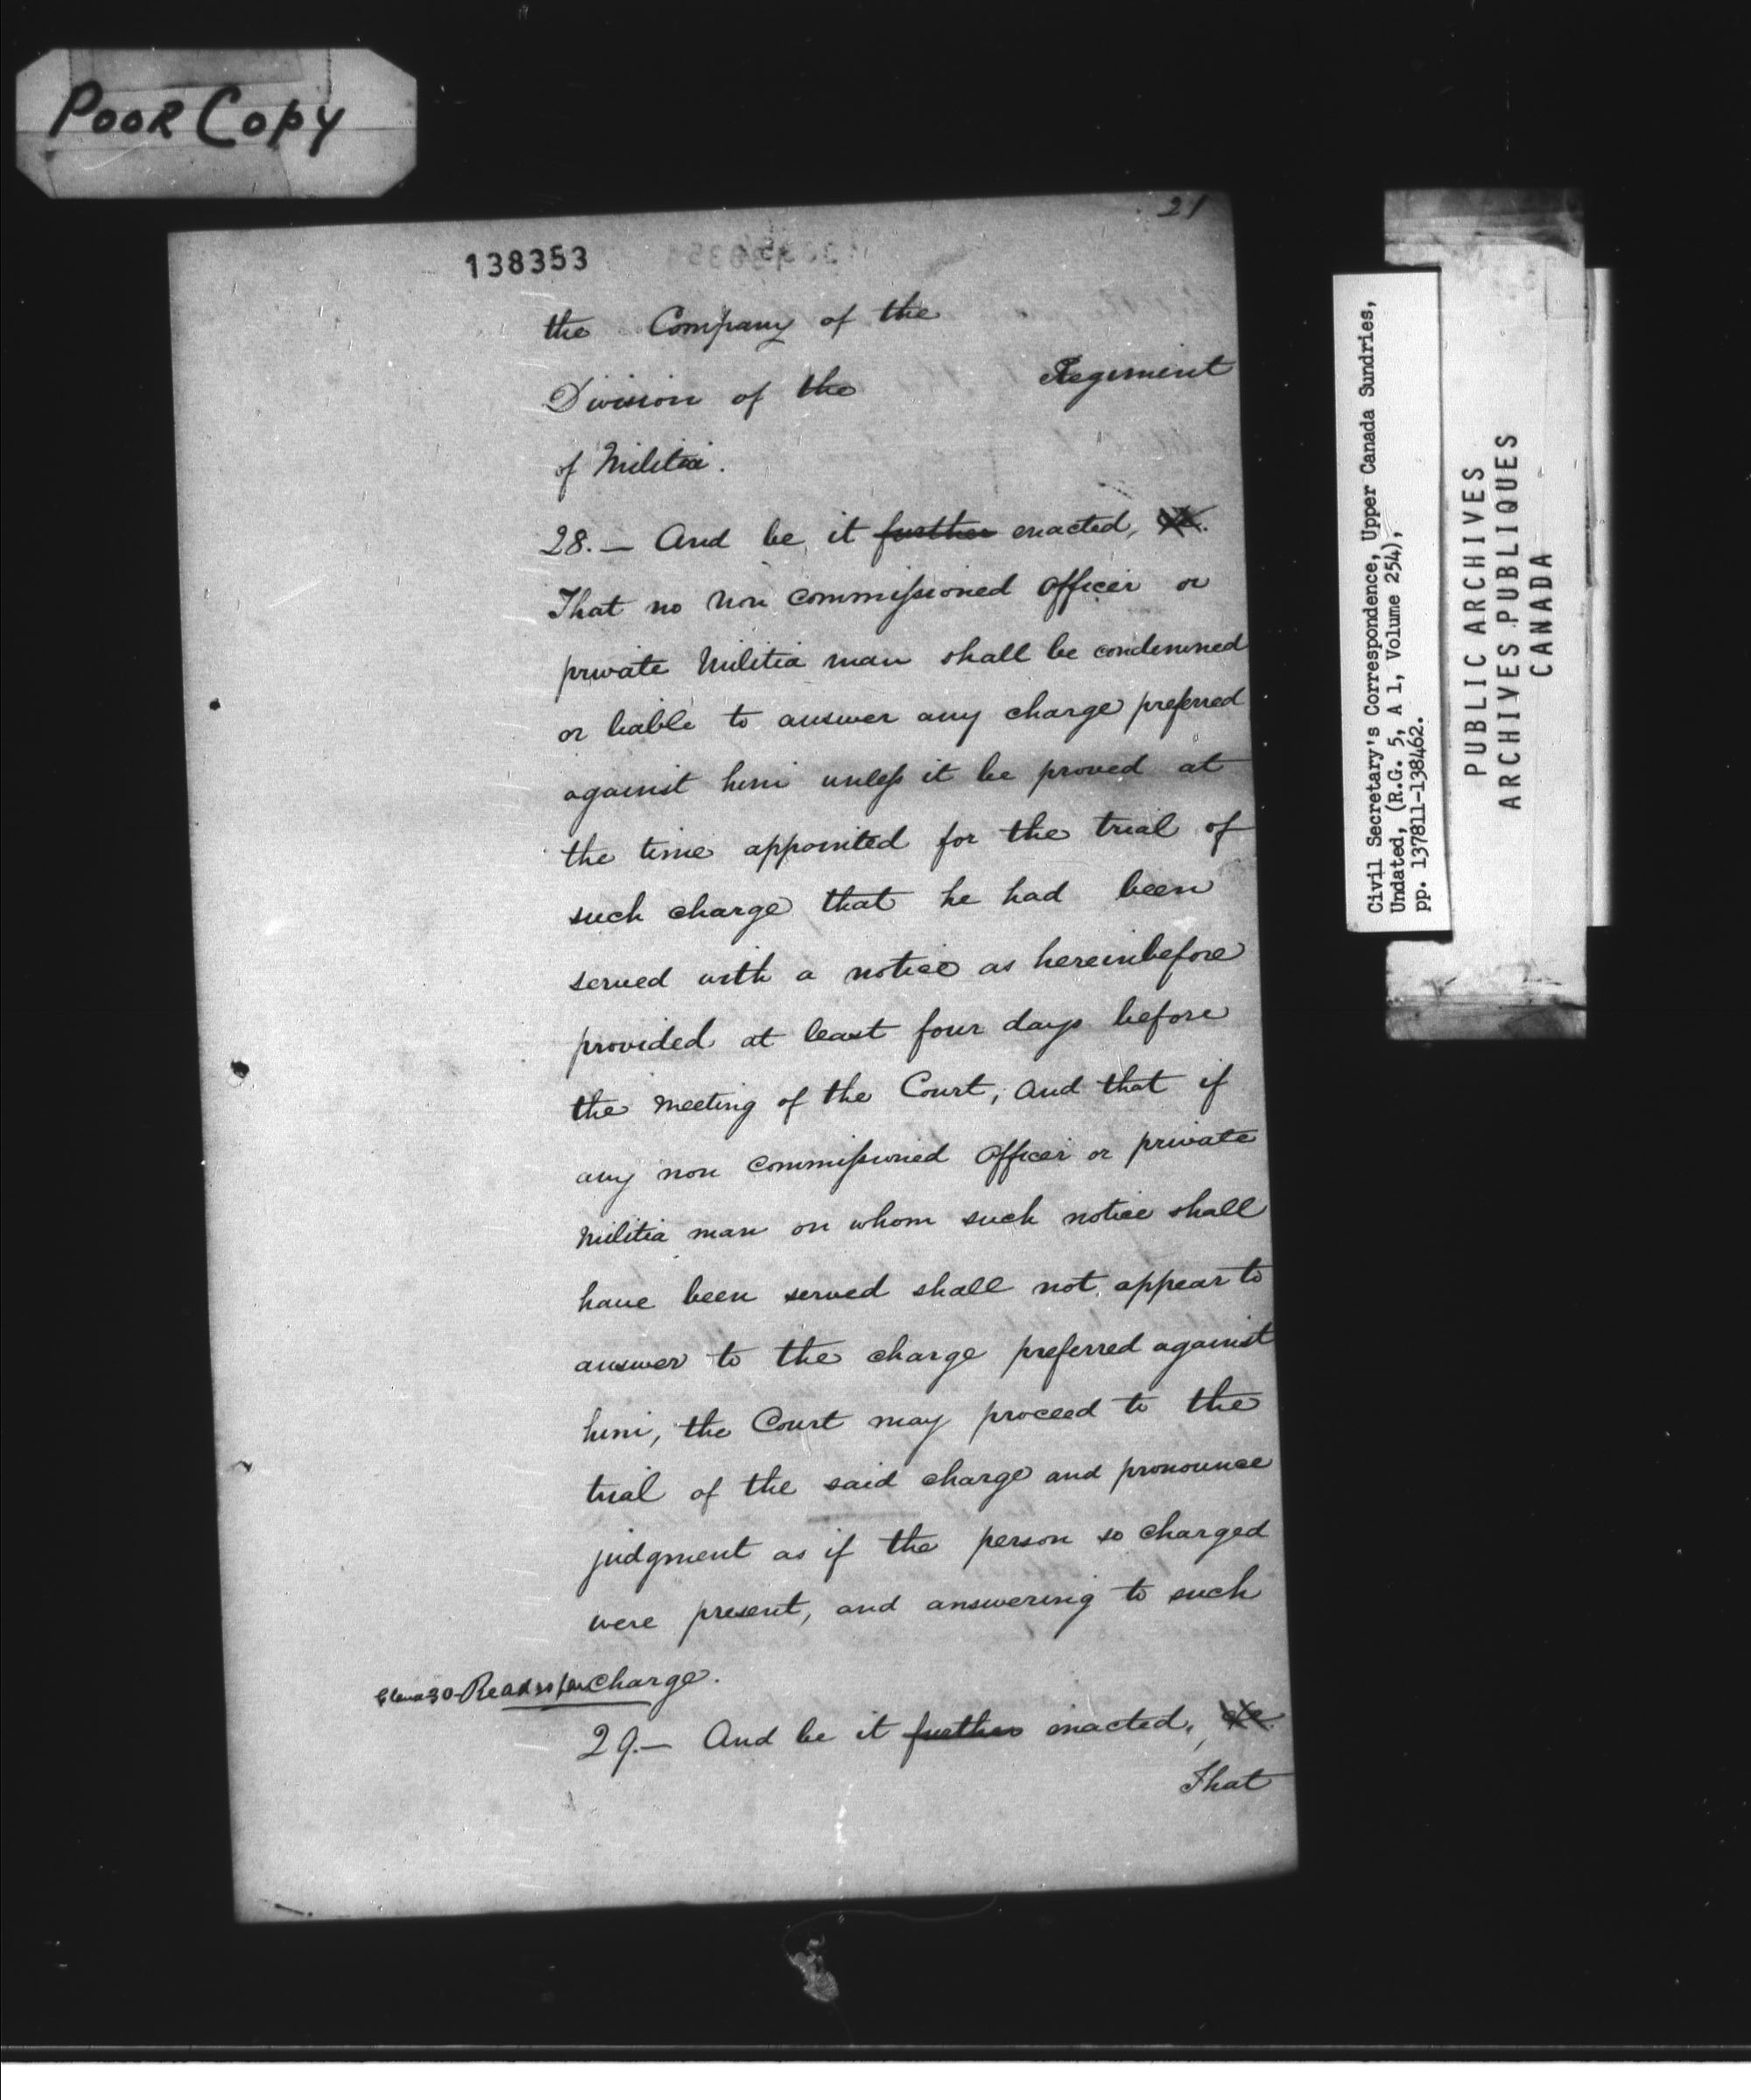 POOR COPY
21
138353
the Company of the
Division of the Regiment
of Militia.
28.— And be it further enacted, &c.
That no non commissioned officer or
private Militia man shall be condemned
or liable to answer any charge preferred
against him unless it be proved at
the time appointed for the trial of
such charge that he had been
served with a notice as hereinbefore
provided at least four days before
the meeting of the Court, and that if
any non commissioned officer or private
Militia man on whom such notice shall
have been served shall not appear to
answer to the charge preferred against
him, the Court may proceed to the
trial of the said charge and pronounce
judgment as if the person so charged
were present, and answering to such
charge.
29.— And be it further enacted, &c.
That
Civil Secretary's Correspondence, Upper Canada Sundries,
Undated, (R.G. 5, A 1, Volume 254),
pp. 137811-138462.
PUBLIC ARCHIVES
ARCHIVES PUBLIQUES
CANADA